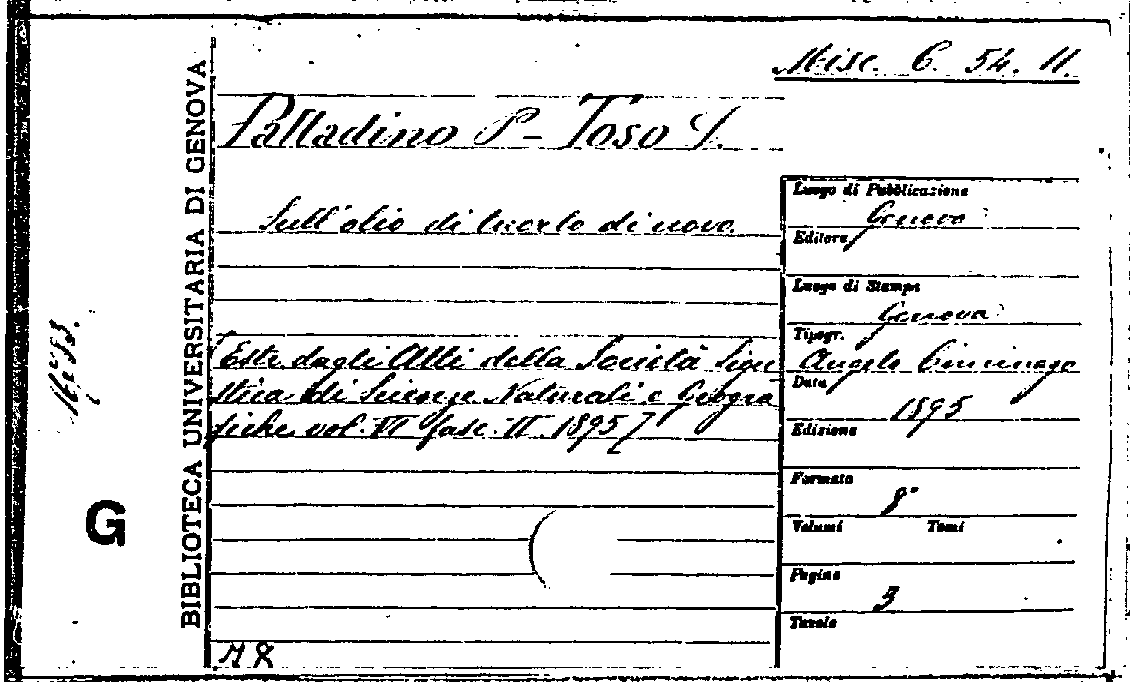 Misc. C. 54. 11.
Palladino P - Toso S.
Sull'olio di tuorlo di uovo.
[Estr. dagli Atti della Società Ligu
stica di Scienze Naturali e Geogra
fiche vol. VI fasc. II. 1895]
Luogo di Pubblicazione
Genova
Editore
Luogo di Stampa
Genova
Tipogr.
Angelo Ciminago
Data
1895
Edizione
Formato
8°
Volumi Tomi
Pagine
3
Tavole
BIBLIOTECA UNIVERSITARIA DI GENOVA
G